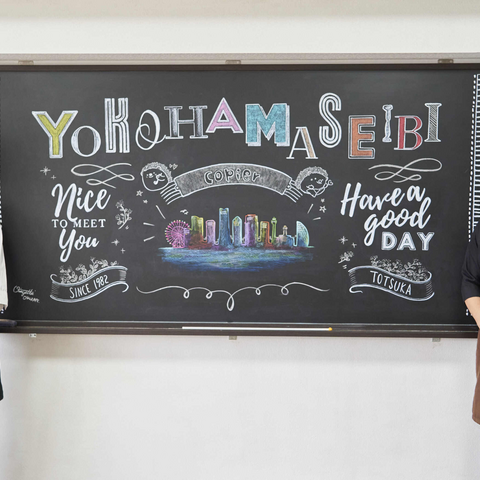 YOKOHAMA SEIBI
copier
Nice
TO MEET
You
Have a
good
DAY
SINCE 1982
TOTSUKA